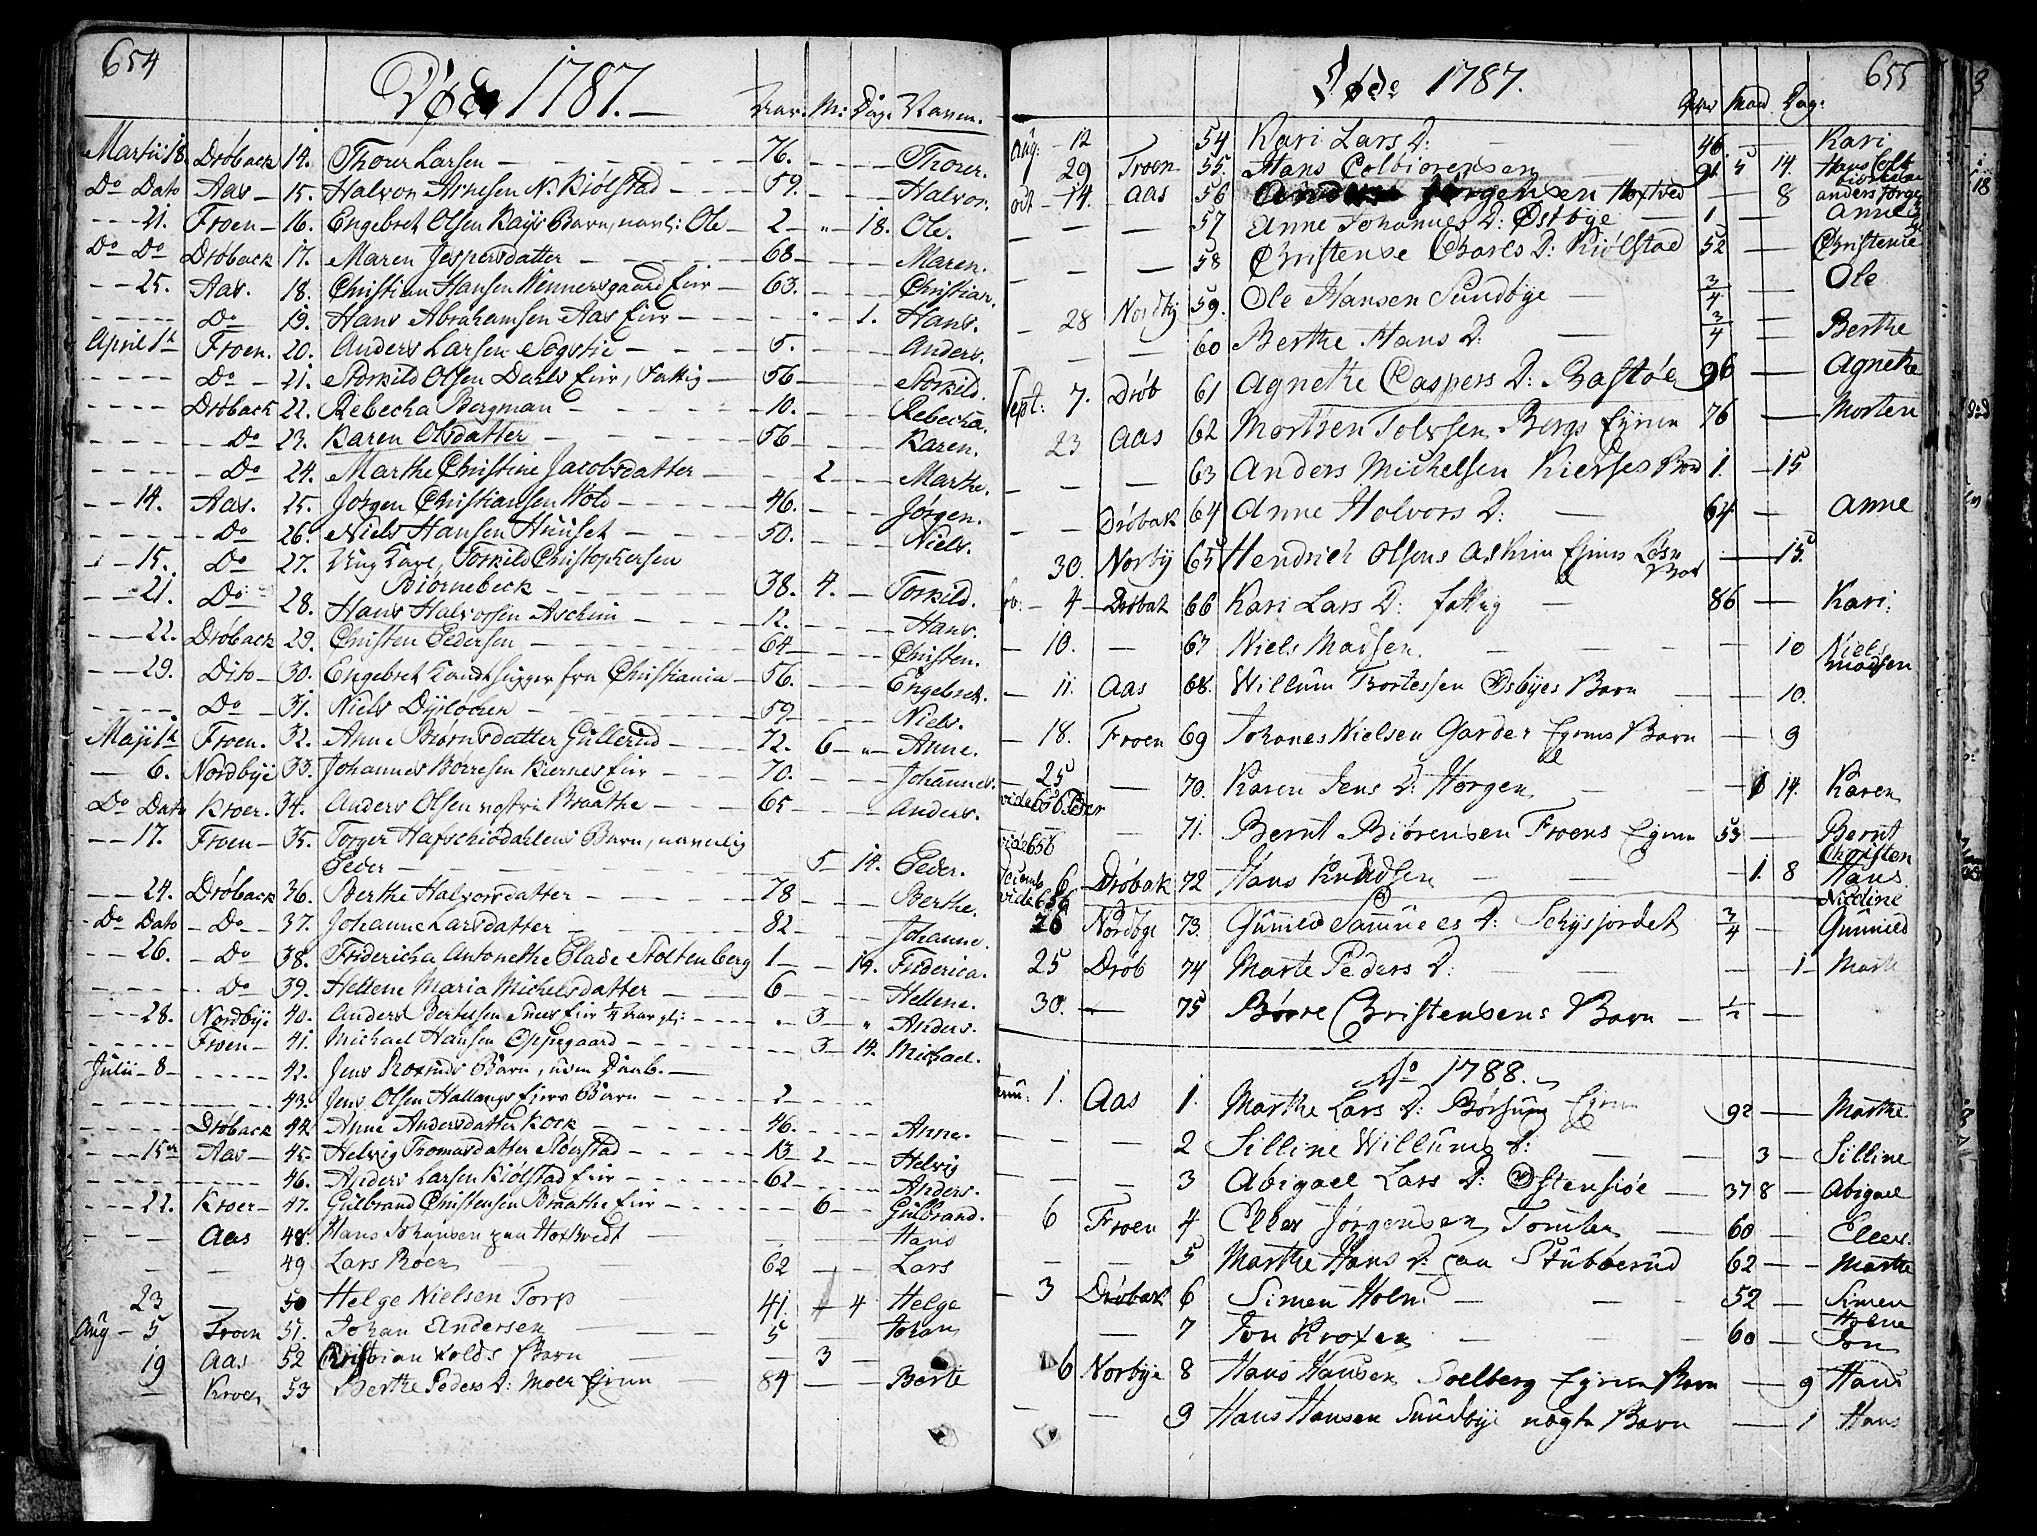 654
Døde 1787.
Aar. M: Dag. Navn.
Martii 18. Drøback 14. Thorer Larsen 76. Thorer.
Do Dato Aas 15. Halvor Arnesen N. Kiølstad 59. Halvor.
21. Froen 16. Engebret Olsen Kays Barn, navnl: Ole 2 " 18. Ole.
Do Do Drøback 17. Maren Jespersdatter 68 Maren.
25. Aas. 18. Christian Hansen Wennersgaard Eier 63. Christian.
Do 19. Hans Abrahamsen Aas Eier 1. Hans.
April 1ste Froen. 20. Anders Larsen Sogstie 5. Anders.
Do 21. Torkild Olsen Dahls Eier, Fattig 56 Torkild.
Drøback 22. Rebecha Bergman 10. Rebecha.
Do 23. Karen Olsdatter 56 Karen.
Do 24. Marthe Christine Jacobsdatter 2 Marthe.
14. Aas. 25. Jørgen Christiansen Wold 46. Jørgen.
Do 26. Niels Hansen Huuset 50. Niels.
15. Do 27. Ung Karl, Torkild Christophersen
Biørnebeck 38. 4. Torkild.
21. Do 28. Hans Halvorsen Aschim 12. Hans.
22. Drøback 29. Christen Pedersen 64 Christen.
29. Dito 30. Engebret fra Christiania 56. Engebret.
Do 31. Niels 59 Niels.
Maji 1ste Froen. 32. Anne Biørnsdatter Gullerud 72. 6 " Anne.
6. Nordbye 33. Johannes Borresen Kiernes Eier 70. Johannes.
Do Dato Kroer. 34. Anders Olsen Braathe 65 Anders.
17. Froen 35. Torger Hafschiodahlens Barn, navnlig
Peder 5 14. Peder.
24. Drøback 36. Berthe Halvorsdatter 78 Berthe.
Do Dato Do 37. Johanne Larsdatter 82 Johanne.
26. Do 38. Fridericha Antonethe Plade Stoltenberg 1 19. Friderica.
Do 39. Hellene Maria Michelsdatter 6 Hellene.
28. Nordbye 40. Anders Bertelsen Eier 3 " Anders.
Froen 41. Michael Hansen Oppegaard 3 14. Michael.
Julii 8 42. Jens Barn, uden Daab.
43. Jens Olsen Hallangs Eiers Barn 2
Drøback 44. Anne Andersdatter Kock 46. Anne.
15de Aas 45. Helvig Thomasdatter 13 2 Helvig
46. Anders Larsen Kiølstad Eier 62 Anders.
22. Kroer 47. Gulbrand Christensen Braathe Eier 6 Gulbrand.
Aas 48. Hans Johansen paa Hoxtvedt Hans
49 Lars Røer 62 Lars
23 50 Helge Nielsen Torp 41. 4 Helge
Aug 5 Froen 51. Johan Andersen 5 Johan
19 Aas 52 Christian Volds Barn 3
Kroer 53 Berthe Peders D: Moer 84 Berte
655
Døde 1787.
Maan Dag:
Aug: 12 54 Kari Lars D: 46. Kari
29 Froen 55. Hans Colbiørensen 91. 5 14. Hans
14. Aas 56 Anders Jørgensen Hoxtved 8 anders Jørge
57 Anne Johannes D: Østbye 1 Anne
58 Christense Charls D: Kiølstad 52 Christense
28 Nordby 59. Ole Hansen Sundbye 3/4 Ole
60 Berthe Hans D: 3/4 Berthe
Sept: 7. Drøb 61 Agnethe Caspers D: Bastøe 96 Agnethe
23 Aas 62 Mortsen Tolvsen Bergs 76 Morten
63 Anders Michelsen Kierses Barn 1. 15
Drøbak 64 Anne Halvors D: 64 Anne
30. Norby 65 Hendrich Olsens Askim 15.
4 Drøbak 66 Kari Lars D: fattig 86 Kari:
10. 67 Niels Madsen 10 Niels Madsen
11. Aas 68. Willum Tortessen Osbyes Barn 10.
18. Froen 69 Johanes Nielsen Garder Barn 9
25 70. Karen Jens D: Horgen 14. Karen
vide 656 Peder
71. Bernt Biørensen Froens 53 Bernt
vide 656 Christen
Decemb 6 Drøbak 72 Hans Knudsen 1. 8 Hans
vide 656
26 Nordbye 73. Gunild Samuels D: 3/4 Gunnild
25 Drøb 74 Marte Peders D: 1 Marte
30. 75 Børre Christensens Barn 1/2
Ao 1788.
1. Aas 1. Marthe Lars D: Børsum 92 Marthe
2 Silline Willums D: 3 Silline
3 Abigael Lars D: Østensiøe 37 8 Abigael
6 Froen 4 Eller Jørgensen Tomten 60 Eller.
5 Marthe Hans D: paa Stubberud 62 Marthe
3 Drøbak 6 Simen Holm 52 Simen
7 Jon Kroxen 60 Jon
6 Norbye 8 Hans Hansen Solberg Barn 9 Hans
9 Hans Hansen Sundbye Barn 1 Hans